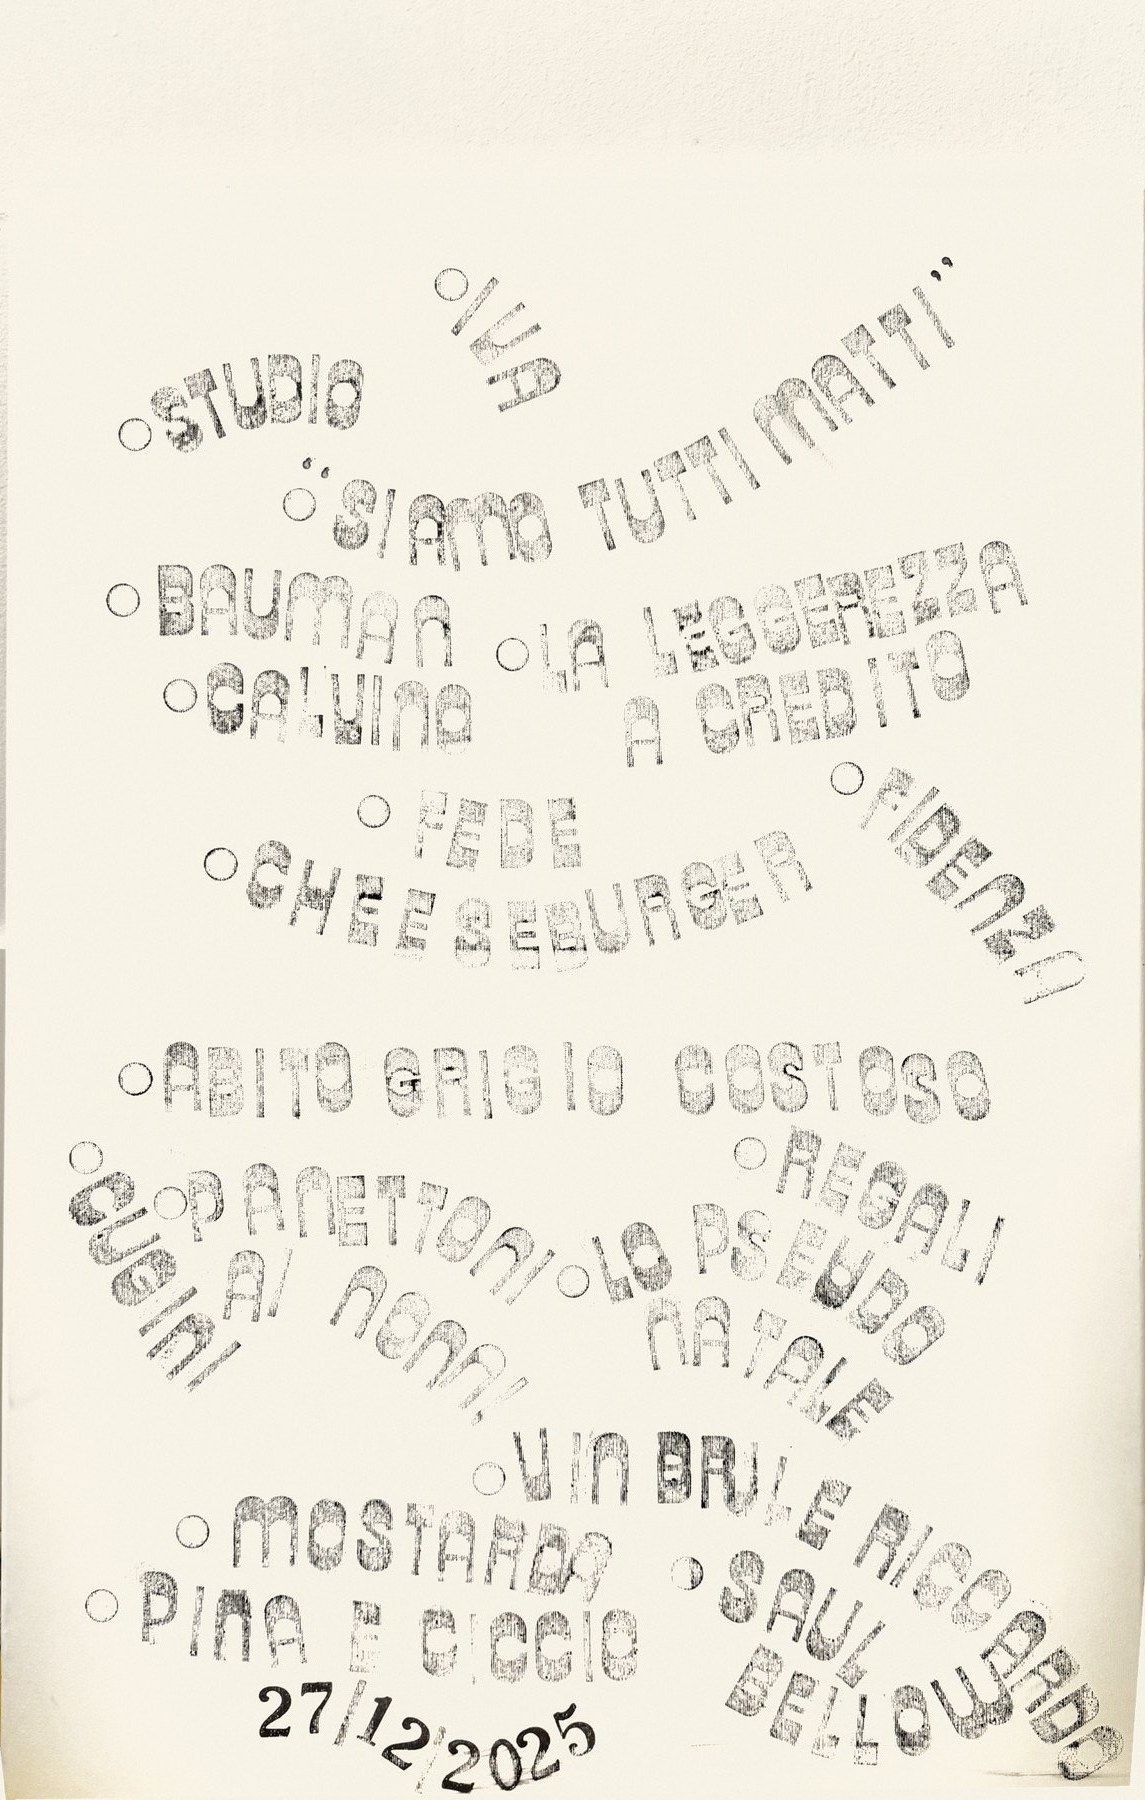 IVA
STUDIO
"SIAMO TUTTI MATTI"
BAUMAN
LA LEGGEREZZA
A CREDITO
CALVINO
FIDENZA
FEDE
CHEESEBURGER
ABITO GRIGIO COSTOSO
REGALI
CUGINI
PANETTONI
AI NONNI
LO PSEUDO
NATALE
VIN BRULE RICCARDO
MOSTARDA
SAUL
BELLOW
PINA E CICCIO
27/12/2025